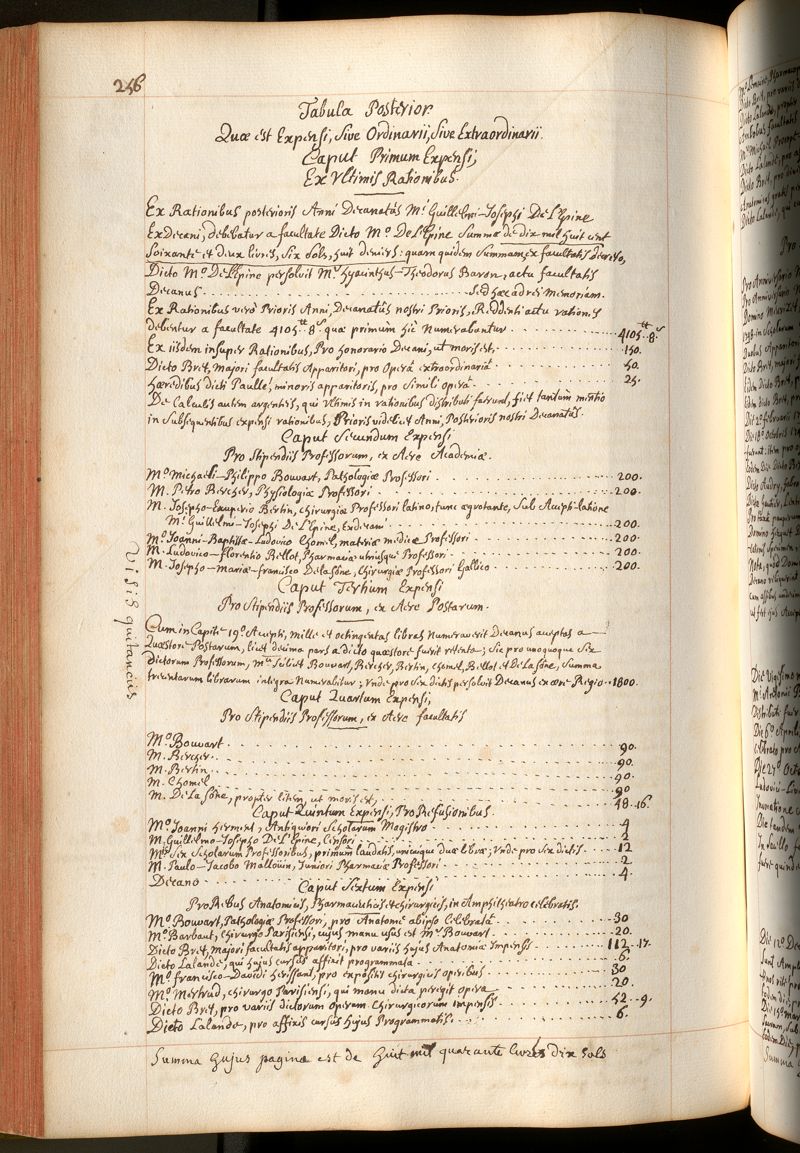 246
Tabula Posterior
Quæ est Expensi, Sive Ordinarii, Sive Extraordinarii.
Caput Primum Expensi,
Ex Ultimis Rationibus.
Ex Rationibus posterioris Anni Decanatûs Mri Guillelmi-Josephi De L'Epine
Exdecani, debebatur a facultate Dicto Mo. De L'Epine Summa de dix mil huit cent
Soixante et deux livres, Six Sols, huit deniers: quam quidem Summam, ex facultatis Decreto,
Dicto Mo. De L'Epine persolvit Mr. Hyacinthus-Theodorus Baron, actu facultatis
Decanus . . . . . . . . Sed hæc ad rei Memoriam.
Ex Rationibus verò Prioris Anni, Decanatûs nostri Prioris, Reddenti actu rationes
debentur a facultate 4105tt. 8s. quæ primùm hîc Numerabuntur . . . . 4105tt. 8s.
Ex iisdem insuper Rationibus, Pro honorario Decani, ut moris est, . . . . 150.
Dicto Bret, Majori facultatis Apparitori, pro Operâ extraordinariâ . . . . 50.
Hæredibus dicti Paullé, minoris apparitoris, pro Simili operâ . . . . 25.
De Calculis autem argenteis, qui Ultimis in rationibus distributi fuerunt, fiet tantùm mentio
in Subsequentibus expensi rationibus, Prioris videlicet Anni, Posterioris nostri Decanatûs.
Caput Secundum Expensi
Pro Stipendiis Professorum, ex Aere Academiæ.
Mo. Michaeli-Philippo Bouvart, Pathologiæ Professori . . . . 200.
M. Petro Bercher, Physiologiæ Professori . . . . 200.
M. Josepho-Exuperio Bertin, Chirurgiæ Professori latino, tunc ægrotante, Sub Accepti-latione
Mri Guillelmi-Josephi De L'Epine, Exdecani . . . . 200.
Mo. Joanni-Baptistæ-Ludovico Chomel, materiæ medicæ Professori . . . . 200.
M. Ludovico-Florentio Bellot, Pharmaciæ utriusque Professori . . . . 200.
M. Josepho-Mariæ-Francisco Delasône, Chirurgiæ Professori Gallico . . . . 200.
Visis quitanciis
Caput Tertium Expensi
Pro Stipendiis Professorum, ex Aere Postarum.
Cum in Capite 19o. Accepti, mille et octingentas libras Numeraverit Decanus acceptas a
Quæstore Postarum, licet decima pars a dicto quæstore fuerit retenta; Sic pro unoquoque Sex
Dictorum Professorum, Mis Scilicet Bouvart, Bercher, Bertin, Chomel, Bellot et De La Sône, Summa
trecentarum librarum integra Numerabitur; Unde pro Sex dictis persolvit Decanus ex ære Regio . . 1800.
Caput Quartum Expensi,
Pro Stipendiis Professorum, ex Aere facultatis
Mo. Bouvart . . . . 90.
M. Bercher . . . . 90.
M. Bertin . . . . 90.
M. Chomel . . . . 90
M. De La Sône, propter litem, ut moris est, . . . . 48. 16.
Caput Quintum Expensi, Pro Refusionibus.
Mo. Joanni Herment, Antiquiori Scholarum Magistro . . . . 4
M. Guillelmo-Josepho De L'Epine, Censori . . . . 2
Mis Sex Scholarum Professoribus, primùm laudatis, unicuique duæ libræ; Unde pro Sex dictis . . . . 12
M. Paulo-Jacobo Malloüin, Juniori Pharmaciæ Professori . . . . 2
Decano . . . . 4.
Caput Sextum Expensi
Pro Rebus Anatomicis, Pharmaceuticis et chirurgicis, in Amphitheatro celebratis.
Mo. Bouvart, Pathologiæ Professori, pro Anatome ab ipso Celebratâ . . . . 30
Mo. Barbaut, Chirurgo Parisiensi, cujus manu usus est Mr. Bouvart . . . . 20.
Dicto Bret, majori facultatis apparitori, pro variis hujus Anatomiæ Impensis . . . . 112. 17.
Dicto Lalande, qui hujus cursûs affixit programmata . . . . 6.
Mo. Francisco-Davidi Herissant, pro expositis chirurgicis operibus . . . . 30
Mo. Mertrud, chirurgo Parisiensi, qui manu dicta peregit opera . . . . 20.
Dicto Bret, pro variis dictorum Operum Chirurgicorum impensis . . . . 52. 9.
Dicto Lalande, pro affixis cursûs hujus Programmatis . . . . 6.
Summa hujus paginæ est de huit mil quarante livres dix sols